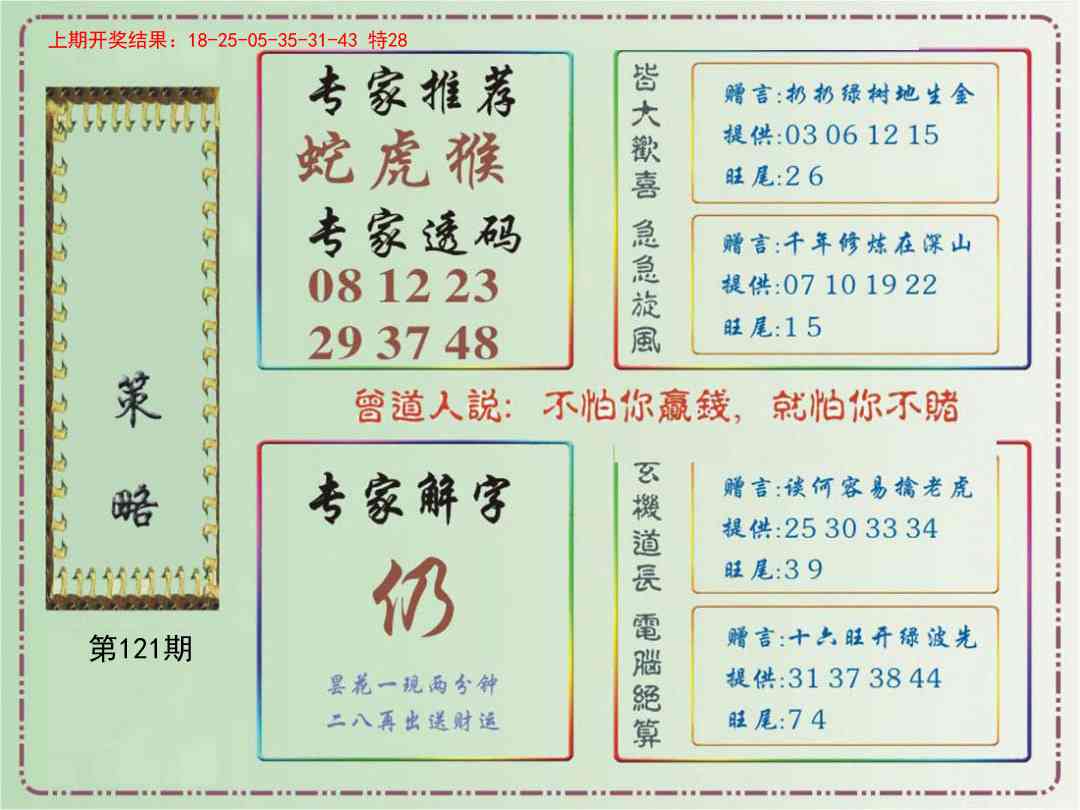 上期开奖结果：18-25-05-35-31-43 特28
策略
第121期
专家推荐
蛇虎猴
专家透码
08 12 23
29 37 48
皆大歡喜
赠言:扔扔绿树地生金
提供:03 06 12 15
旺尾:2 6
急急旋风
赠言:千年修炼在深山
提供:07 10 19 22
旺尾:1 5
曾道人説：不怕你贏錢，就怕你不賭
专家解字
仍
昙花一现两分钟
二八再出送财运
玄機道長
赠言:谈何容易擒老虎
提供:25 30 33 34
旺尾:3 9
電腦絕算
赠言:十六旺开绿波先
提供:31 37 38 44
旺尾:7 4